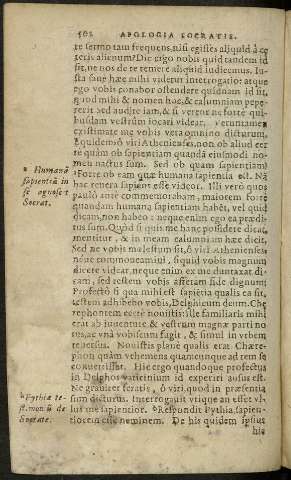 502 APOLOGIA SOCRATIS.
te sermo tam frequens, nisi egisses aliquid à cę
teris alienum? Dic ergo nobis quid tandem id
sit, ne nos de te temere aliquid iudicemus. Iu-
sta sanè hæc mihi videtur interrogatio: atque
ergo vobis conabor ostendere quidnam id sit,
quod mihi & nomen hoc, & calumniam pepe-
rerit. Sed audite iam, & si vergor ne forte qui-
busdam vestrûm iocari videar. Veruntamen
existimate me vobis vera omnino dicturum.
Equidem ô viri Athenienses, non ob aliud nisi
te quàm ob sapientiam quandã eiusmodi no-
men nactus sum. Sed ob quam sapientiam?
Forte ob eam quæ humana sapientia est. Nã
hac revera sapiens esse videor. Illi verò quos
paulò antè commemorabam, maiorem forte
quandam humana sapientiam habēt, vel quid
dicam, non habeo: neque enim ego ea prædi-
tus sum. Quod si quis me hanc possidere dicat,
mentitur, & in meam calumniam hæc dicit.
Sed ne vobis molestum sit, ô viri Athenienses
neue commoueamini, si quid vobis magnum
dicere videar, neque enim ex me duntaxat di-
cam, sed testem vobis afferam fide dignum.
Profectò si qua mihi est sapiētia qualis ea sit,
testem adhibebo vobis, Delphicum deum. Chę
rephontem certè nouistis: ille familiaris mihi
erat ab iuuentute & vestrum magnæ parti no
tus, ac vnà vobiscum fugit, & simul in vrbem
reuersus. Nouistis planè qualis erat Chære-
phon quàm vehemens quamcunque ad rem se
conuertisset. Hic ergo quandoque profectus
in Delphos vaticinium id experiri ausus est.
Ne grauiter feratis, ô viri, quod in præsentia
sum dicturus. Interrogauit vtique an esset vl-
lus me sapientior. Respondit Pythia, sapien-
tiorem esse neminem. De his quidem ipsius
hic
Humanã
sapientiã in
se agnoscit
Socrat.
Pythiæ te-
stimoniũ de
Socrate.